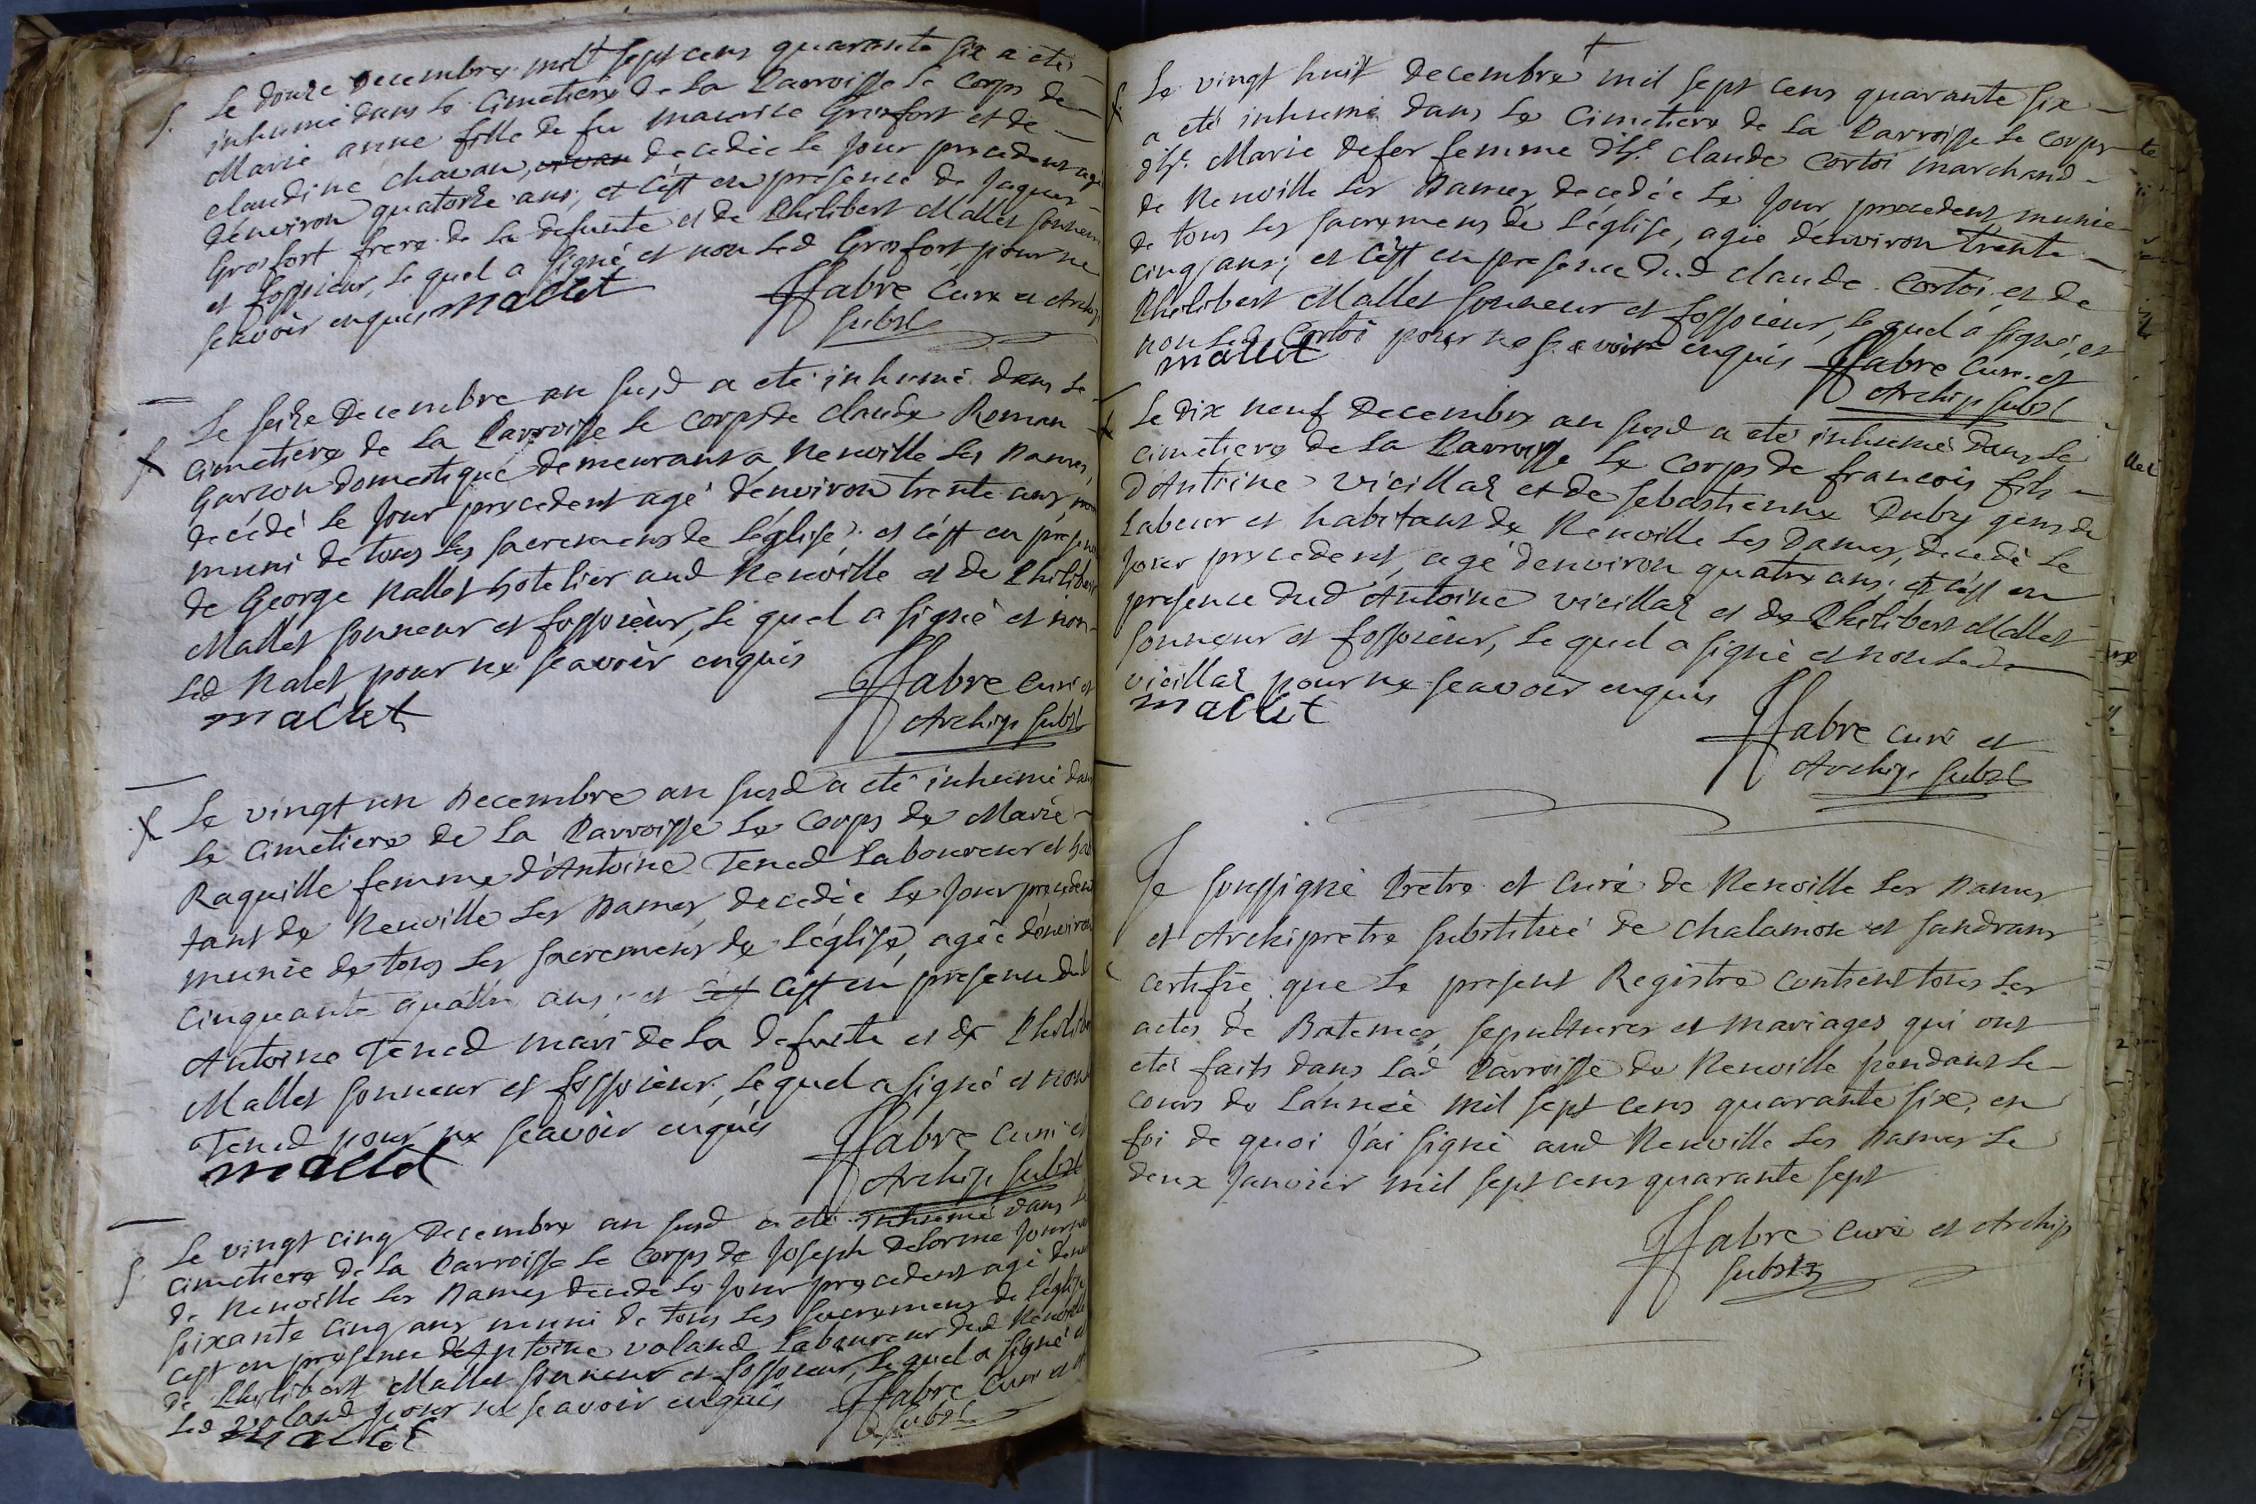 Le douze Decembre mil sept cens quarante six a eté
inhumé dans le Cimetiere de La Parroisse le Corps de
Marie anne fille de fu maurice Grosfort et de
claudine chavan, decedée le Jour precedent agé
denviron quatorze ans, et c'est en presence de Jaques
Grosfort frere de La defunte et de Philibert Mallet sonneur
et fossoieur, le quel a signé et non led Grosfort pour ne
sçavoir enquis mallet
ffabre Curé et Archip
subst
Le seize Decembre an susd a eté inhumé dans le
Cimetiere de La Parroisse le corps de claude Roman
Garson domestique demeurant a Neuville les Dames,
decédé le Jour precedent agé denviron trente ans,
muni de tous les sacremens de L'église, et c'est en presen
de George Nallet hotelier aud Neuville et de Philibert
Mallet sonneur et fossoieur, le quel a signé et non
led Nalet pour ne sçavoir enquis
mallet
ffabre Curé et
Archip subst
Le vingt un Decembre an susd a eté inhumé dans
Le Cimetiere de La Parroisse Le Corps de Marie
Raquille femme d'Antoine Tened Laboureur et habi
tant de Neuville Les Dames, decedée Le Jour precedent
munie de tous Les sacremens de L'église, agée denviron
cinquante quattre ans, et c'est en presence dud
Antoine Tened mari de La defunte et de Philibert
Mallet sonneur et fossoieur, Lequel a signé et non
Tened pour ne sçavoir enquis
mallet
ffabre Curé et
Archip subst
Le vingt cinq Decembre an susd a eté inhumé dans le
Cimetiere de La Parroisse le Corps de Joseph Delorme
de Neuville les Dames decedé le Jour precedent agé denvi
soixante cinq ans muni de tous Les sacremens de l'église
c'est en presence d'Antoine voland Laboureur dud Neuville
de Philibert Mallet sonneur et fossoieur, Le quel a signé et
led voland pour ne sçavoir enquis
mallet
ffabre Curé et
subst
Le vingt huit decembre mil sept cens quarante six
a eté inhumé dans Le Cimetiere de La Parroisse Le corps
Marie defer femme claude Cortoi marchand
de Neuville Les Dames decedée Le Jour precedent, munie
de tous Les sacremens de L'église, agée denviron trente
cinq ans, et c'est en presence dud claude Cortoi et de
Philibert Mallet sonneur et fossoieur, le quel a signé, et
non led Cortoi pour ne sçavoir enquis
mallet
ffabre Curé et
Archip subst
Le dix neuf Decembre an susd a eté inhumé Dans Le
Cimetiere de La Parroisse Le Corps de francois fils
d'Antoine vieillar et de sebastienne Duby gens de
Labeur et habitans de Neuville Les Dames, decedé Le
Jour precedent, agé denviron quatre ans, et c'est en
presence dud Antoine vieillar et de Philibert Mallet
sonneur et fossoieur, Le quel a signé et non led
vieillar pour ne sçavoir enquis
mallet
ffabre curé et
Archip subst
Je soussigné Pretre et Curé de Neuville Les Dames
et Archipretre substitué de chalamon et sandrans
certifie, que Le present Registre contient tous Les
actes de Batemes, sepultures et mariages qui ont
eté faits dans Lad Parroisse de Neuville pendant Le
cours de L'année mil sept cens quarante six, en
foi de quoi J'ai signé aud Neuville Les Dames Le
deux Janvier mil sept cens quarante sept
ffabre curé et Archip
subst